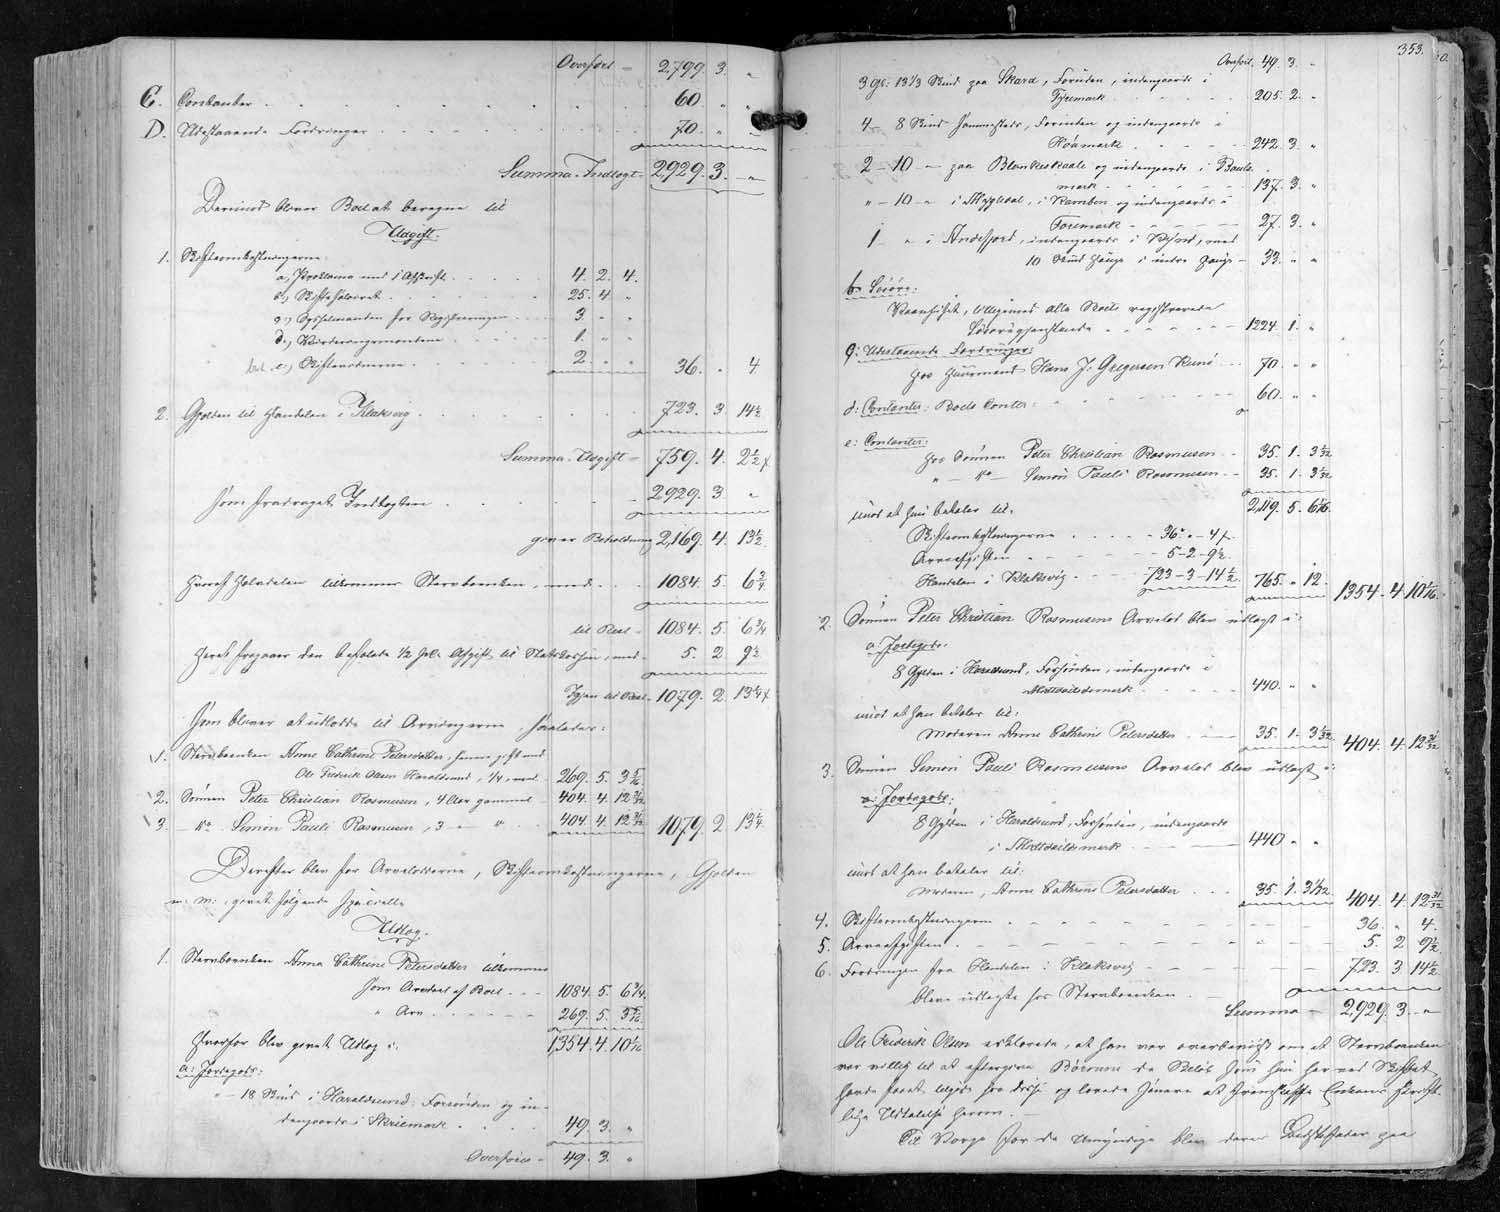 Overført - 2,799. 3. "
C. Contanter 60. " "
D. Udestaaende Fordringer 70. " "
Summa-Indtægt - 2,929. 3. "
Derimod bliver Boet at beregne til
Udgift:
1. Skifteomkostningerne:
a.) Proklama med i Afskrift 4. 2. 4.
b.) Skifteholdet 25. 4. "
c.) Sysselmanden for Registreringen 3. " "
d.) Vurderingsmændene 1. " "
e.) Skiftevidnerne 2. " " 36. " 4
2. Gjælden til Handelen i Klaksvig 723. 3 14½
Summa-Udgift - 759. 4. 2½
som fradraget Indtægten 2929. 3. "
giver Beholdning 2,169. 4. 13½
Hvoraf Halvdelen tilkommer Stervboenken, med 1084. 5. 6¾
til Rest - 1084. 5. 6¾
Heraf fragaaer den befalede ½ pCt. Afgift til Statskassen, med - 5. 2. 9½
Igjen til Rest - 1079. 2. 13¼
som bliver at udlodde til Arvingerne, saaledes:
1. Stervboenken Anne Cathrine Petersdatter, gift med
Ole Frederik Olsen Haraldsund, ¼, med 269. 5. 3 5/16
2. Sønnen Peter Christian Rasmusen, 4 Aar gammel 404. 4. 12 31/32
3. - do Simon Pauli Rasmusen, 3 - " 404. 4. 12 31/32 1079. 2. 13¼
Derefter blev for Arvelodderne, Skifteomkostningerne, Gjælden
m: m: gjort følgende specielle
Udlæg.
1. Stervboenken Anna Cathrine Petersdatter tilkommer
som Andeel af Boet 1084. 5. 6¾
" Arv 269. 5. 3 5/16
Hvorfor blev gjort Udlæg i: 1,354. 4. 10 1/16
a: Jordegods:
" - 18 Skind i Haraldsund, Forsønden og in-
dengaards i Skriemark 49. 3. "
Overføres - 49. 3. "
353.
Overført 49. 3. "
3 Gl: 13⅓ Skind paa Skard, Foruden, indengaards i
Fyremark 205. 2. "
4 - 8 Skind Forinden og indengaards i
242. 3 "
2 - 10 - " paa Blankeskaale og indengaards i
mark 137. 3. "
" - 10 - " i Mygledal, i Kamben og indengaards i
Foremark 27. 3. "
1 - " i Andefjord, indengaards i
10 Skind 33. " "
b. Løsøre:
Vaanhuset, tilligemed alle Boets registrerede
Løsøregjenstande 1224. 1. "
c: Udestaaende Fordringer:
Hos Huusmand Hans J. Gregersen Kunø 70. " "
d: Contanter: Boets Conter 60. " "
e: Contanter:
Hos Sønnen Peter Christian Rasmusen 35. 1. 3 1/32
" - do - Simon Pauli Rasmusen 35. 1. 3 1/32
2,119. 5. 6 1/16
imod at hun betaler til:
Skifteomkostningerne 36 " - 4
Arveafgiften 5 - 2 - 9½
Handelen i Klaksvig 723 - 3 - 14½ 765. " 12. 1354. 4 10 1/16
2. Sønnen Peter Christian Rasmusens Arvelod blev udlagt i:
a: Jordegods:
8 Gylden i Haraldsund, Forsønden, indengaards i
440. " "
imod at han betaler til:
Moderen Anne Cathrine Petersdatter 35. 1. 3 1/32 404. 4. 12 31/32
3. Sønnen Simon Pauli Rasmusens Arvelod blev udlagt i:
a: Jordegods:
8 Gylden i Haraldsund, Forsønden, indengaards
440 " "
imod at han betaler til:
Moderen, Anne Cathrine Petersdatter 35. 1. 3 1/32 404. 4 12 31/32
4. Skifteomkostningerne 36. " 4.
5. Arveafgiften 5. 2 9½
6. Fordringen fra Handelen i Klaksvig 723. 3. 14½
bleve udlagte hos Stervboenken
Summa - 2,929. 3. "
Ole Frederik Olsen erklærede, at han var overbeviist om at Stervboenken
var villig til at eftergive Børnene de Beløb som hun her ved Skiftet
havde faaet tilgode hos disse og lovede senere at fremskaffe Enkens skrift-
lige Udtalelse herom. -
Til Værge for de Umyndige blev deres